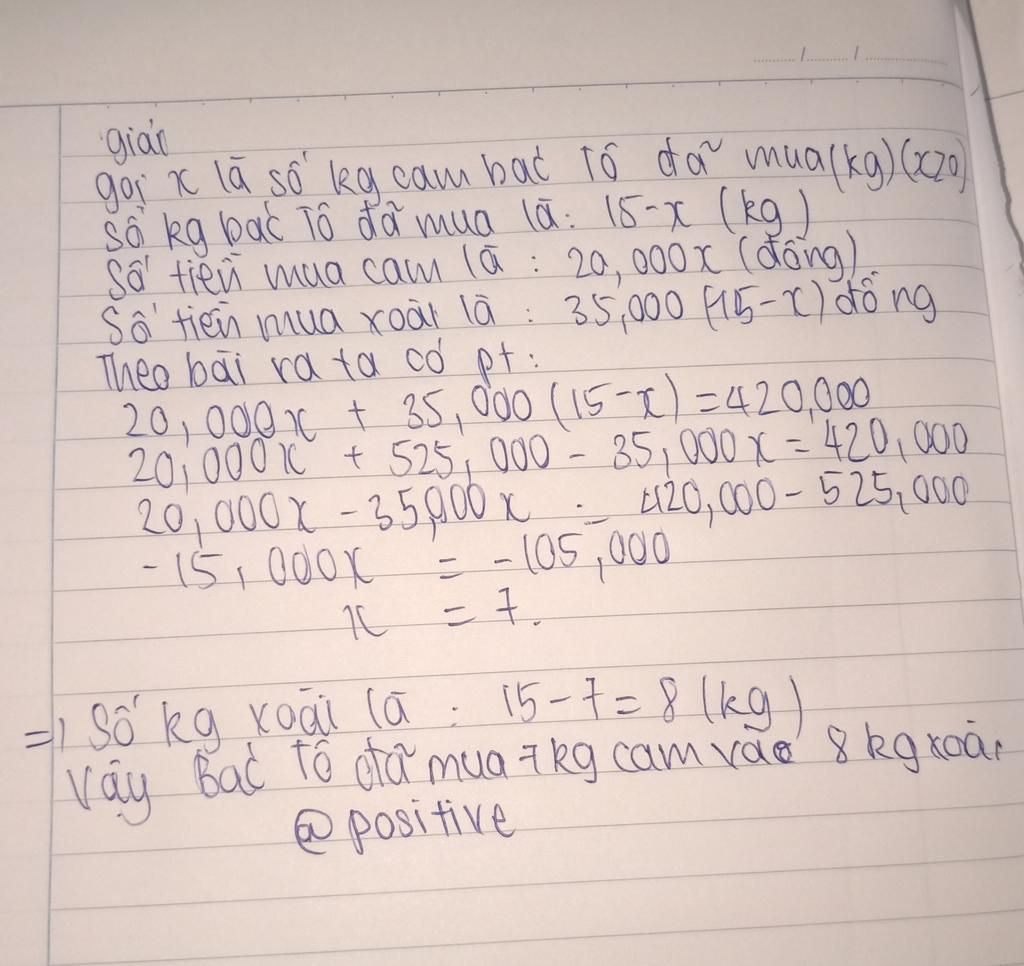 giải
gọi x là số kg cam bác Tô đã mua (kg) (x>0)
Số kg bác Tô đã mua là: 15-x (kg)
Số tiền mua cam là : 20,000x (đồng)
Số tiền mua xoài là : 35,000 (15-x) đồng
Theo bài ra ta có pt:
20,000x + 35,000 (15-x) = 420,000
20,000x + 525,000 - 35,000x = 420,000
20,000x - 35,000x = 420,000 - 525,000
-15,000x = -105,000
x = 7.
=) Số kg xoài là : 15-7 = 8 (kg)
Vậy Bác Tô đã mua 7kg cam vào 8 kg xoài
@positive